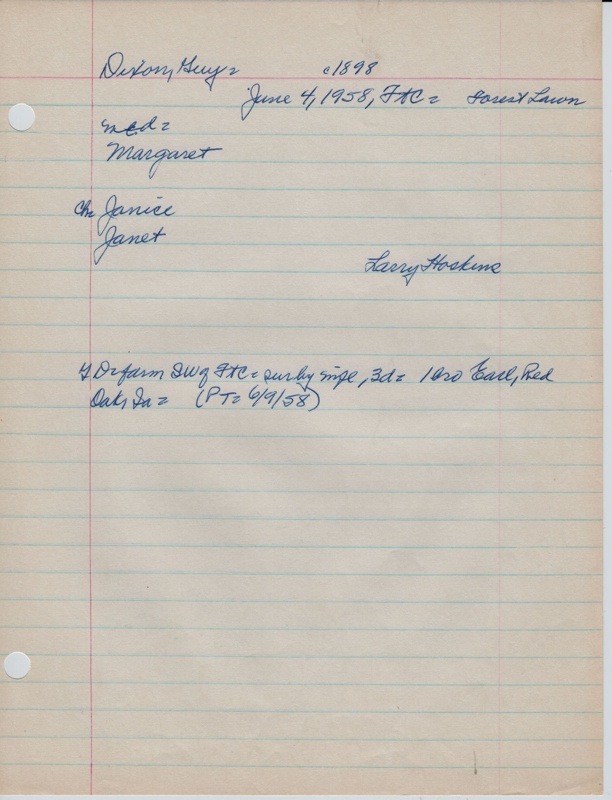 Dixon, Guy = c1898
June 4, 1958, FtC = Forest Lawn
md =
Margaret
Ch = Janice
Janet
Larry Hoskins
farm SW of FtC = sur by wife, 3d = 1 bro Earl, Red
Oak, Ia = (PT = 6/9/58)